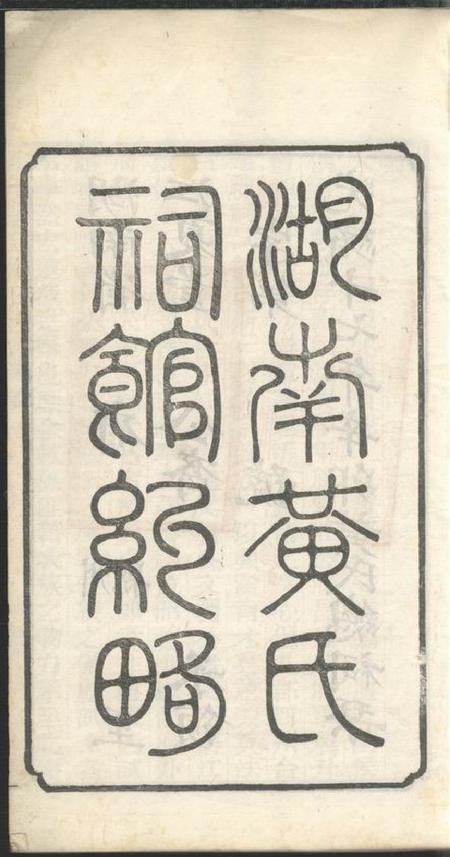 湖南黃氏
祠館紀略